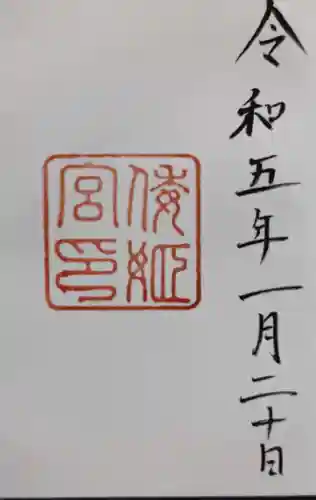 令和五年一月二十日
倭姫
宮印